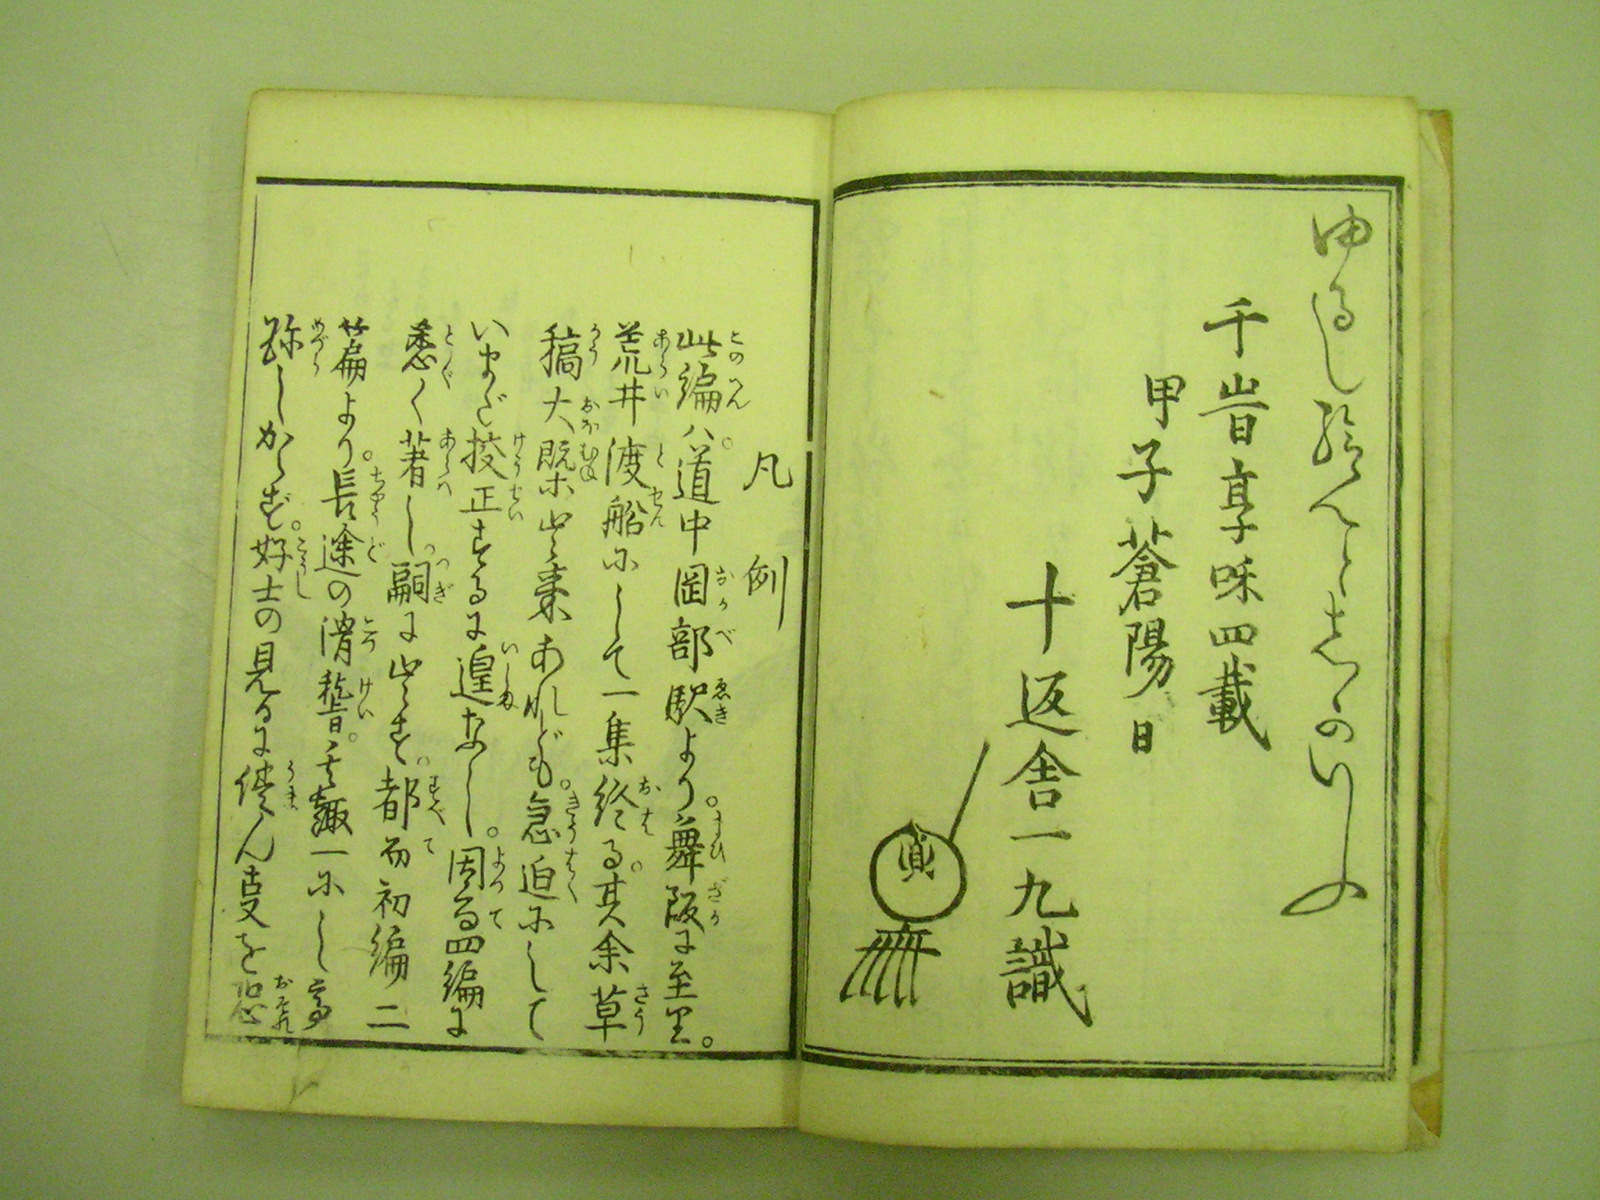 ゆるし給へとしかいふ
千旹享和四載
甲子蒼陽日
十返舎一九識
貞
凡例
此編ハ。道中岡部駅より。舞阪に至里。
荒井渡船にして一集終る。其余草
稿大既出来あれども。急迫にして
いまだ挍正するに遑なし。因而四編に
悉く著し。嗣に出す。都而初編二
篇より。長途の滑稽。其趣一にし
跡しからず。好士の見るに倦んを恐